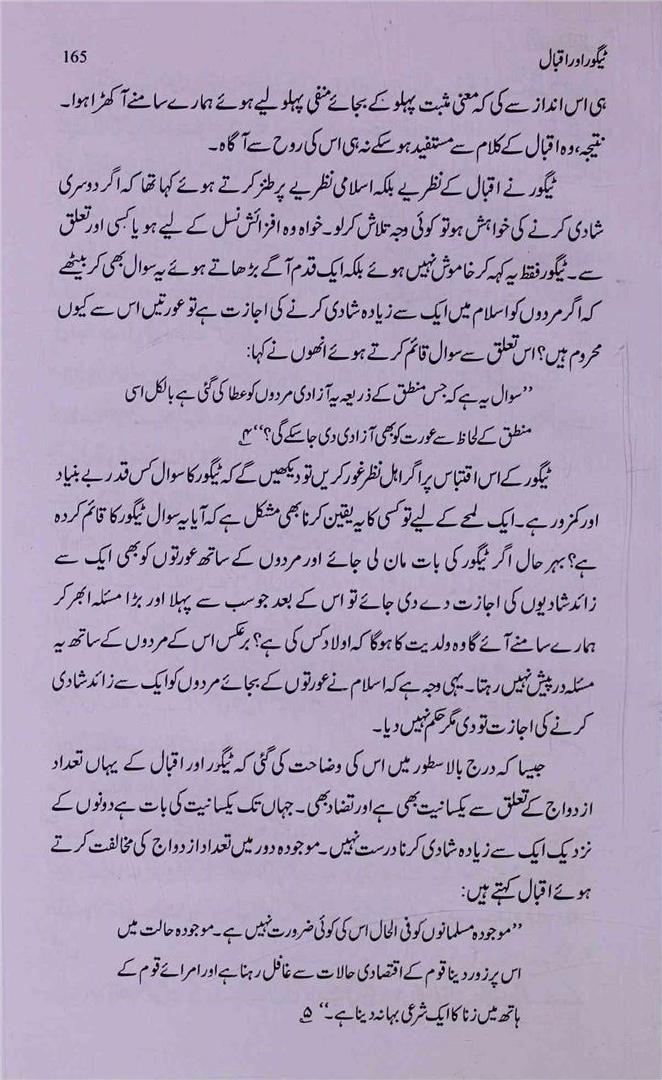 ٹیگور اور اقبال 165
ہی اس انداز سے کی کہ معنی مثبت پہلو کے بجائے منفی پہلو لیے ہوئے ہمارے سامنے آ کھڑا ہوا۔
نتیجہ، وہ اقبال کے کلام سے مستفید ہو سکے نہ ہی اس کی روح سے آگاہ۔
ٹیگور نے اقبال کے نظریے بلکہ اسلامی نظریے پر طنز کرتے ہوئے کہا تھا کہ اگر دوسری
شادی کرنے کی خواہش ہو تو کوئی وجہ تلاش کر لو۔ خواہ وہ افزائش نسل کے لیے ہو یا کسی اور تعلق
سے۔ ٹیگور فقط یہ کہہ کر خاموش نہیں ہوئے بلکہ ایک قدم آگے بڑھاتے ہوئے یہ سوال بھی کر بیٹھے
کہ اگر مردوں کو اسلام میں ایک سے زیادہ شادی کرنے کی اجازت ہے تو عورتیں اس سے کیوں
محروم ہیں؟ اس تعلق سے سوال قائم کرتے ہوئے انھوں نے کہا:
”سوال یہ ہے کہ جس منطق کے ذریعہ یہ آزادی مردوں کو عطا کی گئی ہے بالکل اسی
منطق کے لحاظ سے عورت کو بھی آزادی دی جا سکے گی؟“ ۴؎
ٹیگور کے اس اقتباس پر اگر اہل نظر غور کریں تو دیکھیں گے کہ ٹیگور کا سوال کس قدر بے بنیاد
اور کمزور ہے۔ ایک لمحے کے لیے تو کسی کا یہ یقین کرنا بھی مشکل ہے کہ آیا یہ سوال ٹیگور کا قائم کردہ
ہے؟ بہر حال اگر ٹیگور کی بات مان لی جائے اور مردوں کے ساتھ عورتوں کو بھی ایک سے
زائد شادیوں کی اجازت دے دی جائے تو اس کے بعد جو سب سے پہلا اور بڑا مسئلہ ابھر کر
ہمارے سامنے آئے گا وہ ولدیت کا ہوگا کہ اولاد کس کی ہے؟ برعکس اس کے مردوں کے ساتھ یہ
مسئلہ درپیش نہیں رہتا۔ یہی وجہ ہے کہ اسلام نے عورتوں کے بجائے مردوں کو ایک سے زائد شادی
کرنے کی اجازت تو دی مگر حکم نہیں دیا۔
جیسا کہ درج بالا سطور میں اس کی وضاحت کی گئی کہ ٹیگور اور اقبال کے یہاں تعداد
ازدواج کے تعلق سے یکسانیت بھی ہے اور تضاد بھی۔ جہاں تک یکسانیت کی بات ہے دونوں کے
نزدیک ایک سے زیادہ شادی کرنا درست نہیں۔ موجودہ دور میں تعداد ازدواج کی مخالفت کرتے
ہوئے اقبال کہتے ہیں:
”موجودہ مسلمانوں کو فی الحال اس کی کوئی ضرورت نہیں ہے۔ موجودہ حالت میں
اس پر زور دینا قوم کے اقتصادی حالات سے غافل رہنا ہے اور امرائے قوم کے
ہاتھ میں زنا کا ایک شرعی بہانہ دینا ہے۔“ ۵؎